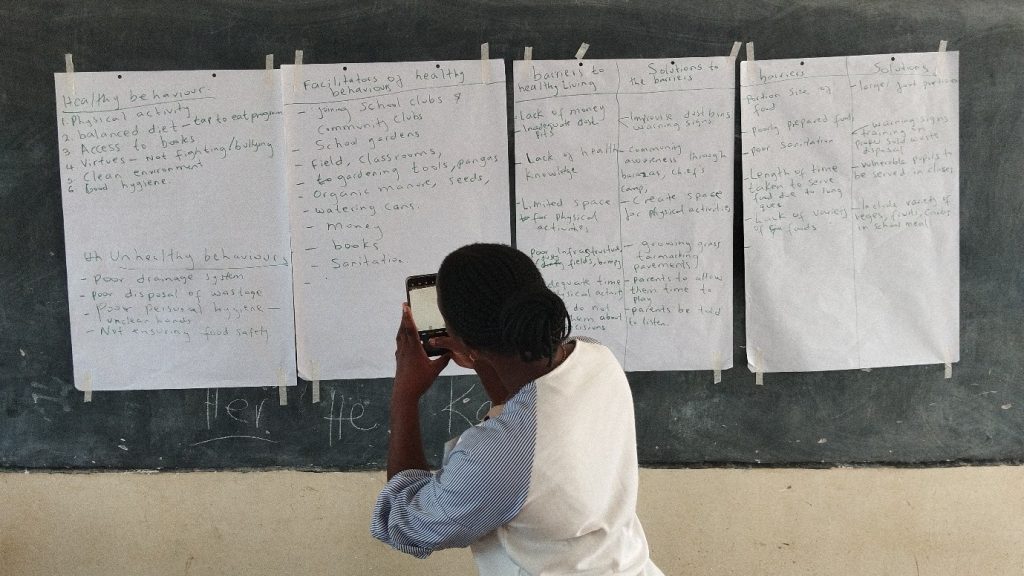 Healthy behaviour.
1. Physical activity
2. balanced diet - tap to eat program
3 Access to books
4. Virtues - Not fighting/bullying
5 Clean environment
6 Good hygiene.
Unhealthy behaviours
- Poor drainage system
- Poor disposal of wastage
- Poor personal hygiene -
unclean hands
- Not ensuring food safety
Facilitators of healthy
behaviour
- Joining School clubs &
Community clubs
- School gardens
- Field, classrooms,
- gardening tools, pangas
- Organic manure, seeds,
- watering cans.
- money
- books
- Sanitation
barriers to
healthy Living
- Lack of money
- Inadequate dust
pits
- Lack of health
knowledge
- Limited space
for physical
activities
- Poor Infrastructure
fields, bumpy
time
physical activity
do not
about
Solutions to
the barriers
- Improvise dust bins
warning signs
- Community
awareness through
barazas, chief's
camp,
- Create space
for physical activities
- growing grass
tarmacking
pavements)
- parents to allow
them time to
play
- parents be told
to listen.
barriers
- Portion size of
food
- Poorly prepared foods
- poor sanitation
- Length of time
taken to serve
food due to long
ques
- Lack of variety
of foods
Solutions
- large food portion
- warning signs
training on
proper solid waste
disposal
- vulnerable pupils to
be served in class
- Include variety of
veges, fruits,
in school meal
Her He